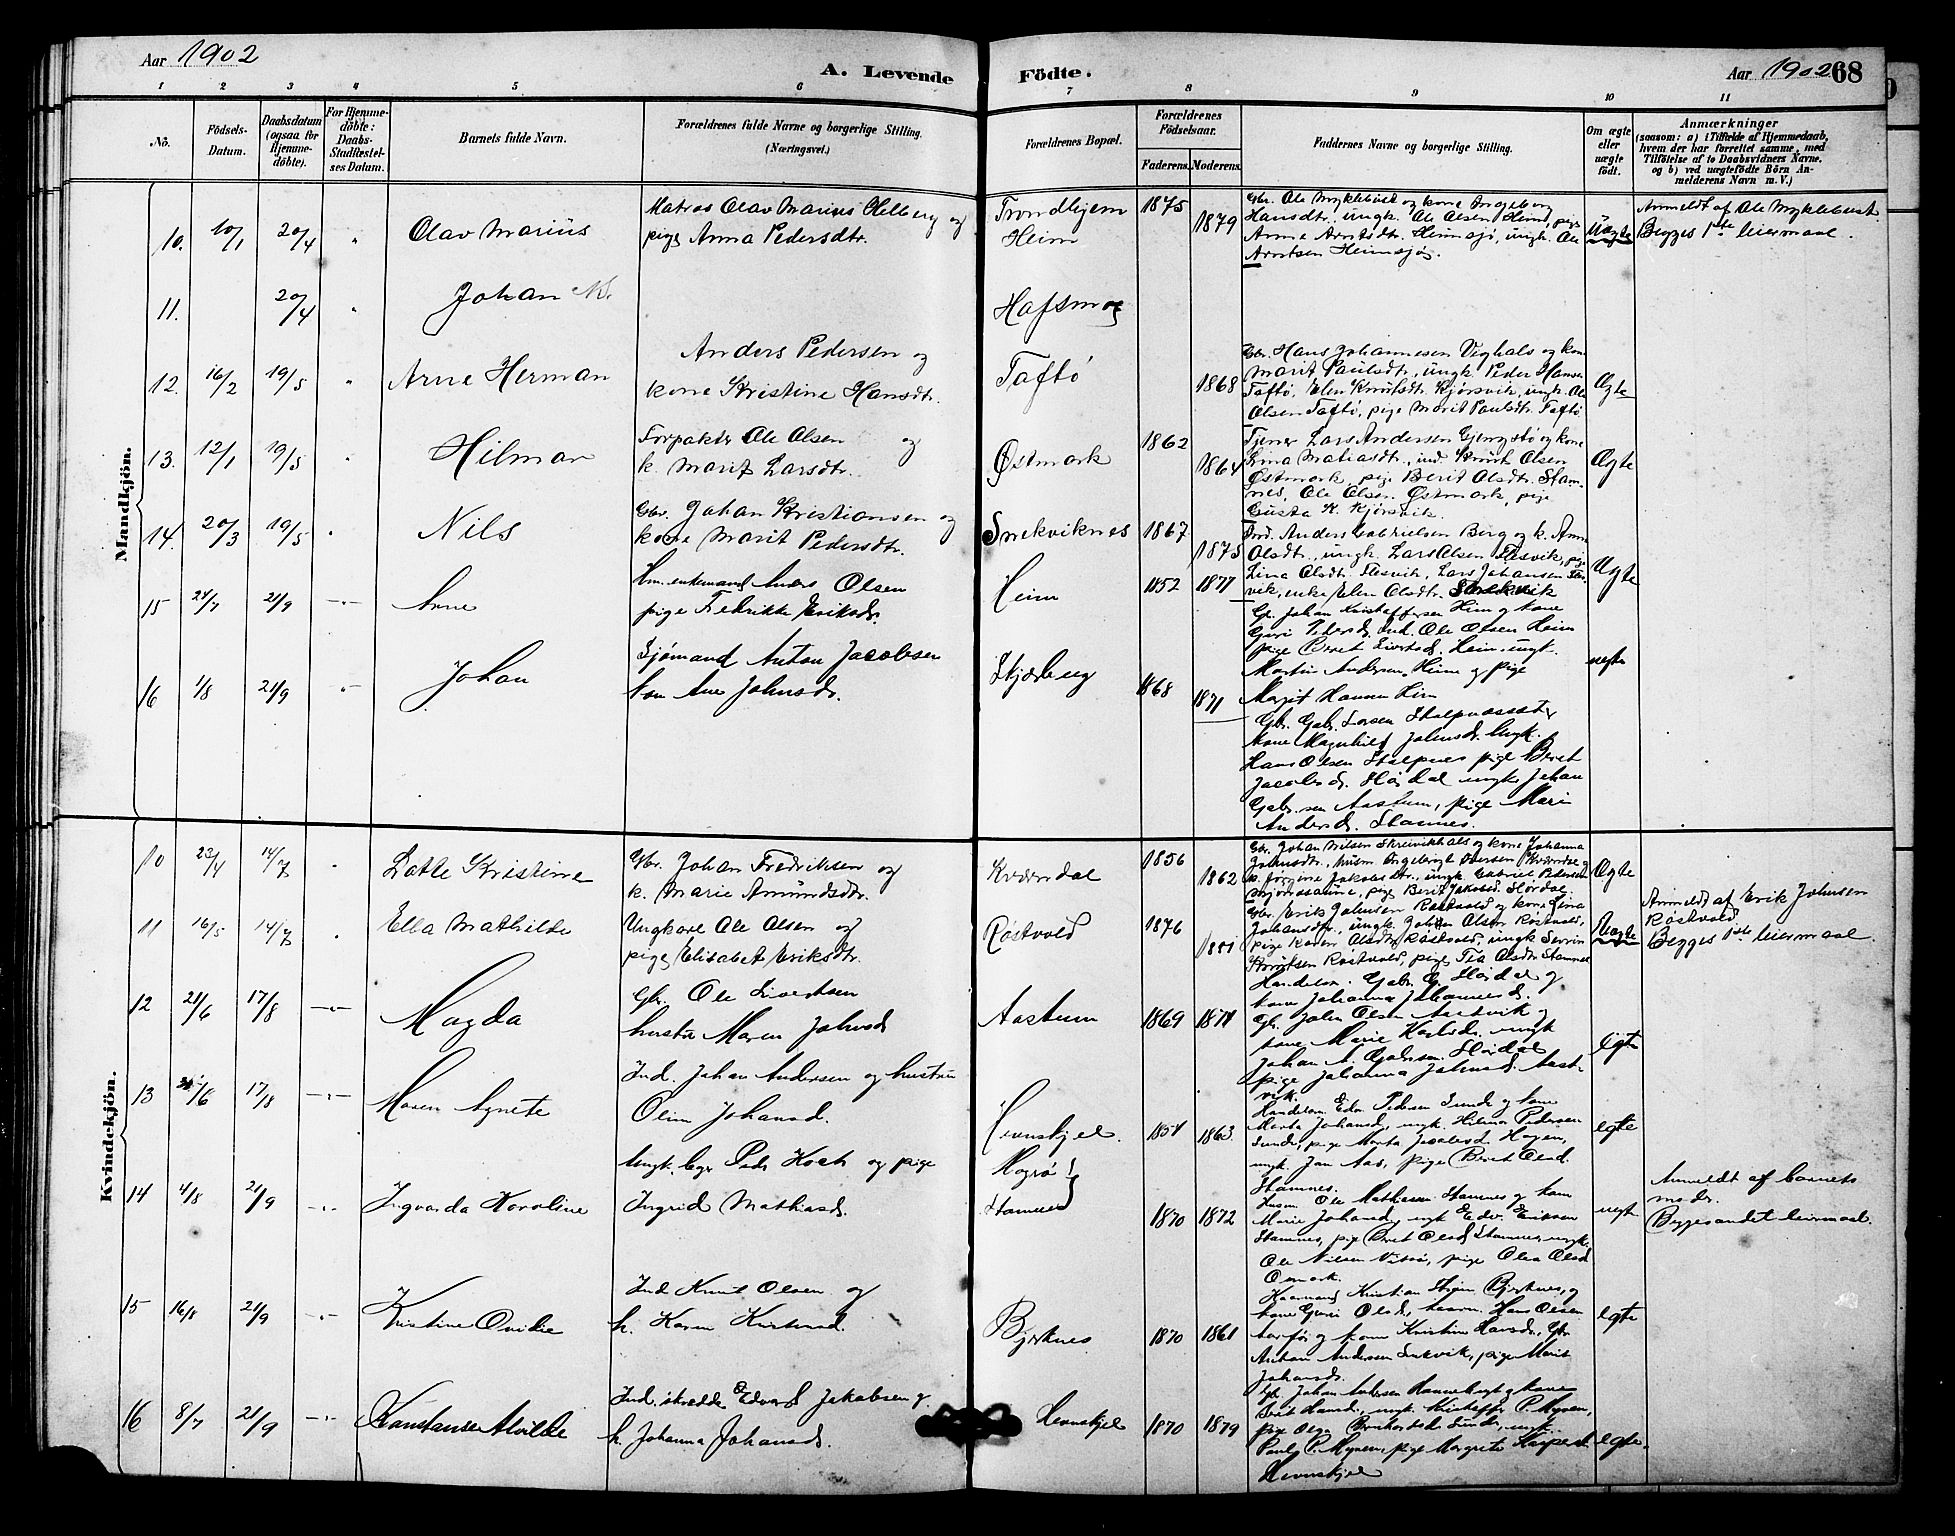 Aar 1902
A. Levende Födte.
Aar 1902 68
1 2 3 4 5 6 7 8 9 10 11
No.
Födsels-Datum.
Daabsdatum (ogsaa for Hjemme-döbte).
For Hjemme-döbte: Daabs-Stadfæstel-ses Datum.
Barnets fulde Navn.
Forældrenes fulde Navne og borgerlige Stilling. (Næringsvei.)
Forældrenes Bopæl.
Forældrenes Födselsaar.
Faderens. Moderens.
Faddernes Navne og borgerlige Stilling.
Om ægte eller uægte födt.
Anmærkninger
(saasom: a) i Tilfælde af Hjemmedaab, hvem der har forrettet samme, med Tilföielse af to Daabsvidners Navne, og b) ved uægtefödte Börn An-melderens Navn m. V.)
Mandkjön.
10. 10/1 20/4 " Olav Marius
Matros Olav Marius Helberg og
pige Anna Pedersdtr.
Trondhjem
Heim
1875 1879
Gbr. Ole Myklebust og kone Ingeborg
Hansdtr., ungk. Ole Olsen Heim, pige
Anne Arntsdtr. Heimsjø, ungk. Ole
Arntsen Heimsjø.
Uægte
Anmeldt af Ole Myklebust
Begges 1ste leiermaal.
11. 20/4 " Johan N.
Hafsmo
12. 16/2 19/5 " Arne Herman
Anders Pedersen og
kone Kristine Hansdtr.
Taftø
1868
Gbr. Hans Johannesen Vighals og kone
Marit Paulsdtr., ungk. Peder Hansen
Taftø, Elen Knutsdtr. Kjørsvik, ungk. Ole
Olsen Taftø, pige Marit Paulsdtr. Taftø
Ægte
13. 12/1 19/5 " Hilmar
Forpakter Ole Olsen og
k. Marit Larsdtr.
Østmark
1862 1864
Tjener Lars Andersen Gjengstø og kone
Lina Matiasdtr., ind. Knut Olsen
Østmark, pige Berit Olsdtr. Stam-
nes, Ole Olsen Østmark, pige
Gusta K. Kjørsvik.
Ægte
14. 20/3 19/5 " Nils
Gbr. Johan Kristiansen og
kone Marit Pedersdtr.
Snekviknes
1867 1875
Ind. Anders Gabrielsen Berg og k. Anne
Olsdtr., ungk. Lars Olsen
Lina Olsdtr. Lars Johansen
vik, enke Elen Olsdtr.
Ægte
15 21/9 Arne
enkemand Anders Olsen
pige Fredrikke Eriksd.
Heim
1852 1877
Gbr. Johan Kristoffersen Heim og kone
Guri Pedersd. Ind. Ole Olsen Heim
pige Beret Sivertsd. Heim ungk.
Martin Andersen Heim og pige
Margit Hansen Heim
uegte
16 1/8 21/9 Johan
Sjømand Anton Jacobsen
kone Ane Johnsdr.
Skjærberg
1868 1871
Gbr. Gabr. Larsen
kone Magnhild Johnsd. Ungk.
Hans Olsen pige Beret
Jacobsd. Hørdal ungk. Johan
Gabr.sen Aastum, pige Mari
Andersd. Stamnes.
Kvindekjön.
10 23/4 14/7 " Lotte Kristine
Gbr. Johan Fredriksen og
k. Marie Amundsdtr.
Kværndal
1856 1862
Gbr. Johan Nilsen og kone Johanna
Johnsdtr., husm. Ingebrigt Iversen Kværndal og
k. Jørgine Jakobsdtr., ungk. Gabriel Pedersen
pige Berit Jakobsd. Hørdal.
Ægte
11 16/5 14/7 " Ella Mathilde
Ungkarl Ole Olsen og
pige Elisabet Eriksdtr.
Røstvold
1876 1881
Gbr. Erik Johnsen Røstvold og kone Lina
Johansdtr., ungk. Johan Olsen Røstvold,
pige Karen Olsdtr. Røstvold, ungk. Severin
Knutsen Røstvold, pige Tea Olsdtr. Stamnes
Uægte
Anmeldt af Erik Johnsen
Røstvold
Begges 1ste leiermaal.
12 21/6 17/8 Magda
Gbr. Ole Sivertsen
hustru Maren Johnsd
Aastum
1869 1871
Handelsm. Gabr. G. Hørdal og
kone Johanna Johannesd.
Gbr. John Olsen Aastvik og
kone Marie Karlsd. ungk
Johan A. Gabrsen. Hørdal
pige Johanna Johnsd. Aast-
vik.
egte
13 17/8 Maren Agnete
Ind. Johan Andersen og hustru
Oline Johansd.
Hevnskjel.
1857 1863.
Handelsm Edv. Pedersen Sunde og kone
Marta Johansd, ungk. Hilmar Pedersen
Sunde, pige Marta Jacobsd. Hagen,
ungk. Jon Aas, pige Beret Olsd.
Stamnes.
egte
14 4/8 21/9 Ingvarda Karoline
Ungk. Peder Koch og pige
Ingrid Mathiasd.
Magrø
Stamnes
1870 1872
Husm. Ole Mathiasen Stamnes og kone
Marie Johansd, ungk Edv. Eriksen
Stamnes, pige Beret Olsd Stamnes, ungk.
Ole Nilsen pige Olea Olsd
uegte
Anmeldt af barnets
moder.
Begges andet leiermaal.
15 16/8 21/9 Kristine Ovidie
Ind Knut Olsen og
h. Karen Kristensd.
Bjerknes
1870 1861
Kristian Bjerknes, og
kone Guri Olsd, Hans Olsen
og kone Kristine Hansd. Gbr
Anton Andersen pige Marit
Johansd.
egte
16 8/7 21/9 Konstanse Alvilde
Ind. skredder Edvard Jakobsen og
h. Johanna Johansd.
Hevnskjel
1870 1879
Gbr. Johan Andersen og kone
Berit Hansd., ungk. Kristoffer P. Myren,
pige Olga Sunde, ungk
Paul P. Myren, pige Margrete Kaspersd.
Hevnskjel
egte.